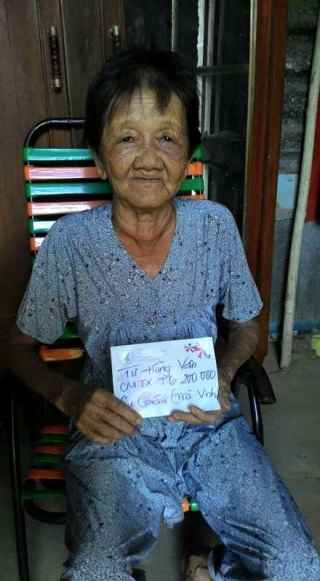 Từ Hồng Vân
CMTX T6 200 000
Cụ Gấu (Trà Vinh)